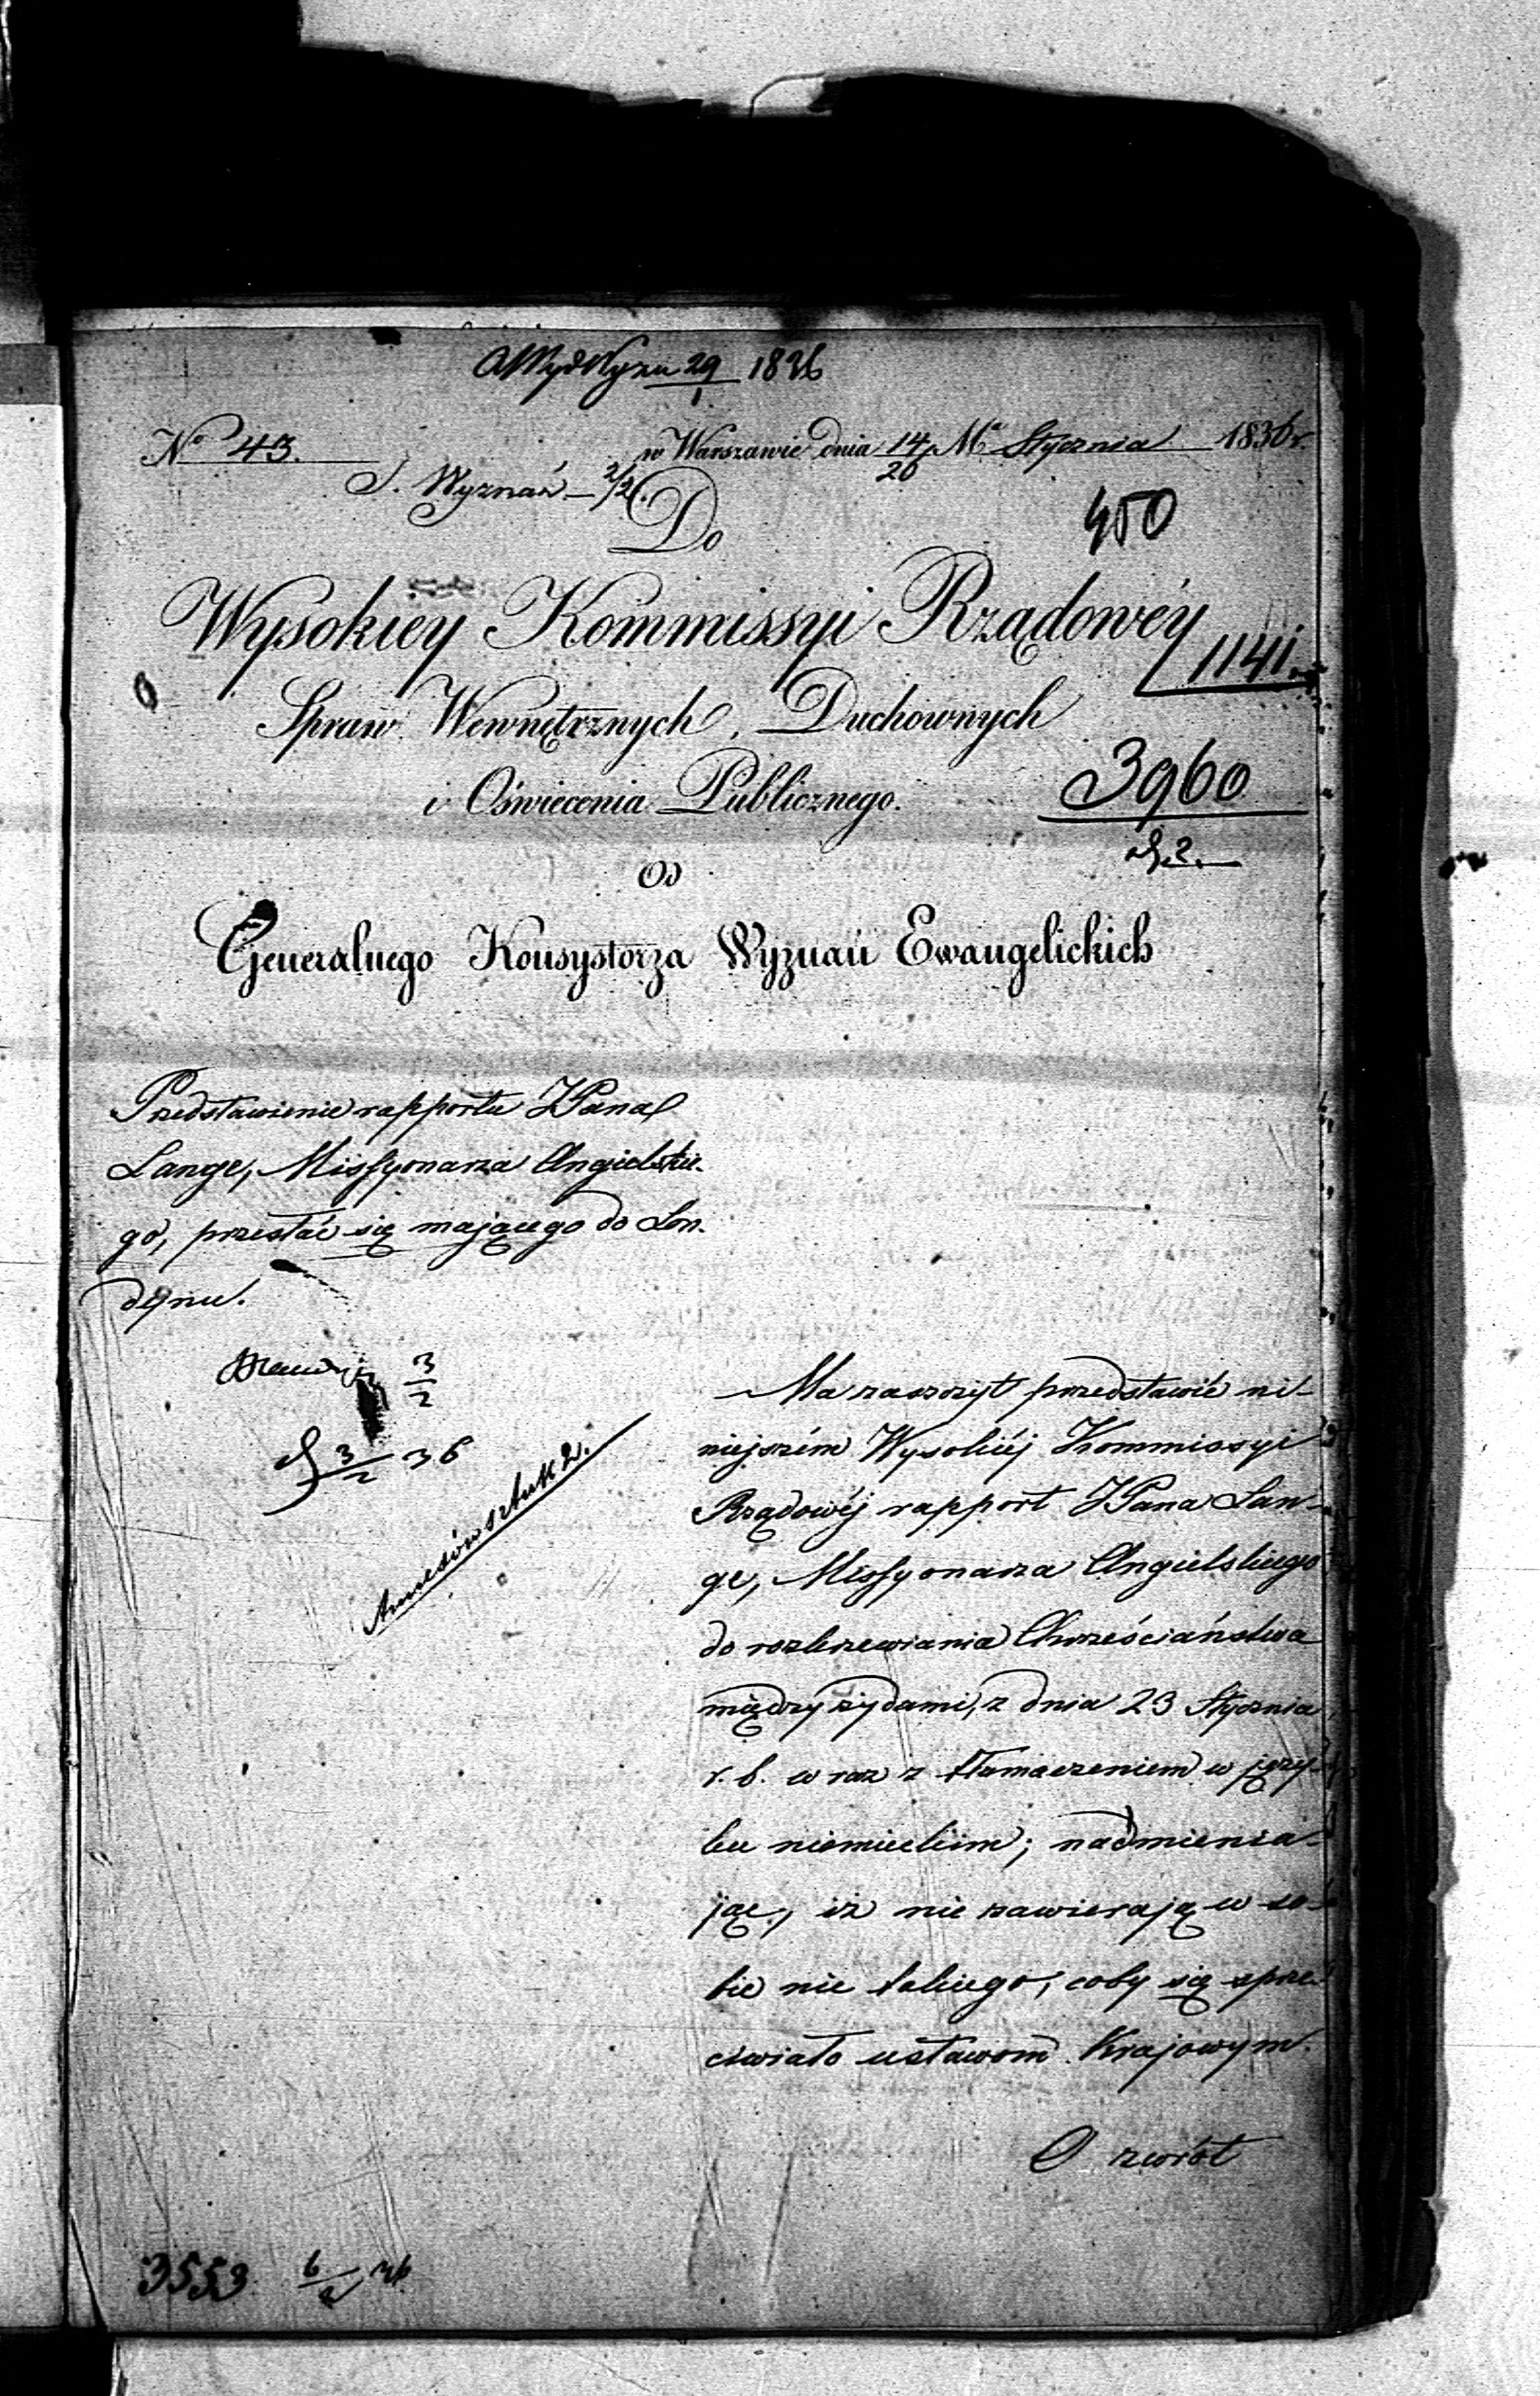 29/1 1836
No 43. w Warszawie dnia 14/26 Ma Stycznia 1836 r.
S. Wyznań – 2/2.
Do
450
Wysokiey Kommissyi Rządowéy
1141.
Spraw Wewnętrznych, Duchownych
i Oświecenia Publicznego.
3960
Od
Generalnego Konsystorza Wyznań Ewangelickich
Przedstawienie rapportu JPana
Lange, Missyonarza Angielskie-
go, przesłać się mającego do Lon-
dynu.
3/2
3/2 36
Annexów sztuk 2.
Ma zaszczyt przedstawić ni-
niejszém Wysokiéj Kommissyi
Rządowéj rapport JPana Lan-
ge, Missyonarza Angielskiego
do rozkrzewiania Chrześciaństwa
między żydami, z dnia 23 Stycznia
r. b. wraz z tłumaczeniem w języ-
ku niemieckim; nadmienia-
jąc, iż nie zawierają w so-
bie nic takiego, coby się sprze-
ciwiało ustawom Krajowym.
O zwrót
3553 6/2 36